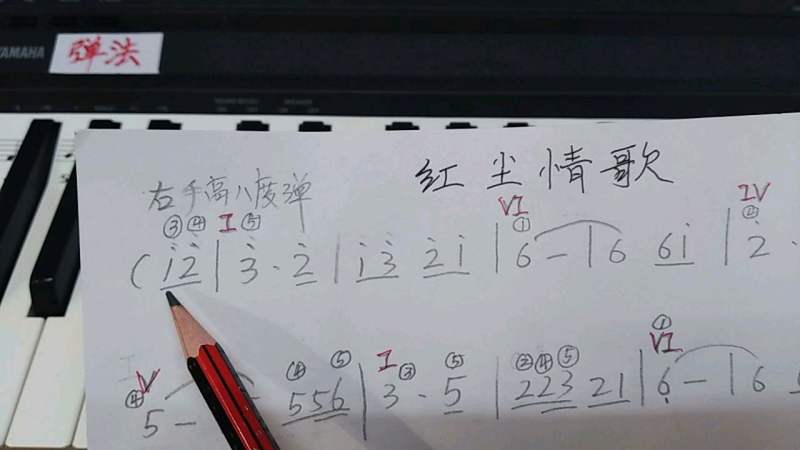 YAMAHA
弹法
红尘情歌
右手高八度弹
③ ④ I ⑤ VI ① IV ②
( i̇ 2̇ | 3̇ · 2̇ | i̇ 3̇ 2̇ i̇ | 6 - | 6 6 i̇ | 2̇ ·
④ V ④ ⑤ I ③ ⑤ ② ④ ⑤ ① VI
5 - 5 5 6 | 3 · 5 | 2 2 3 2 1 | 6̣ - | 6